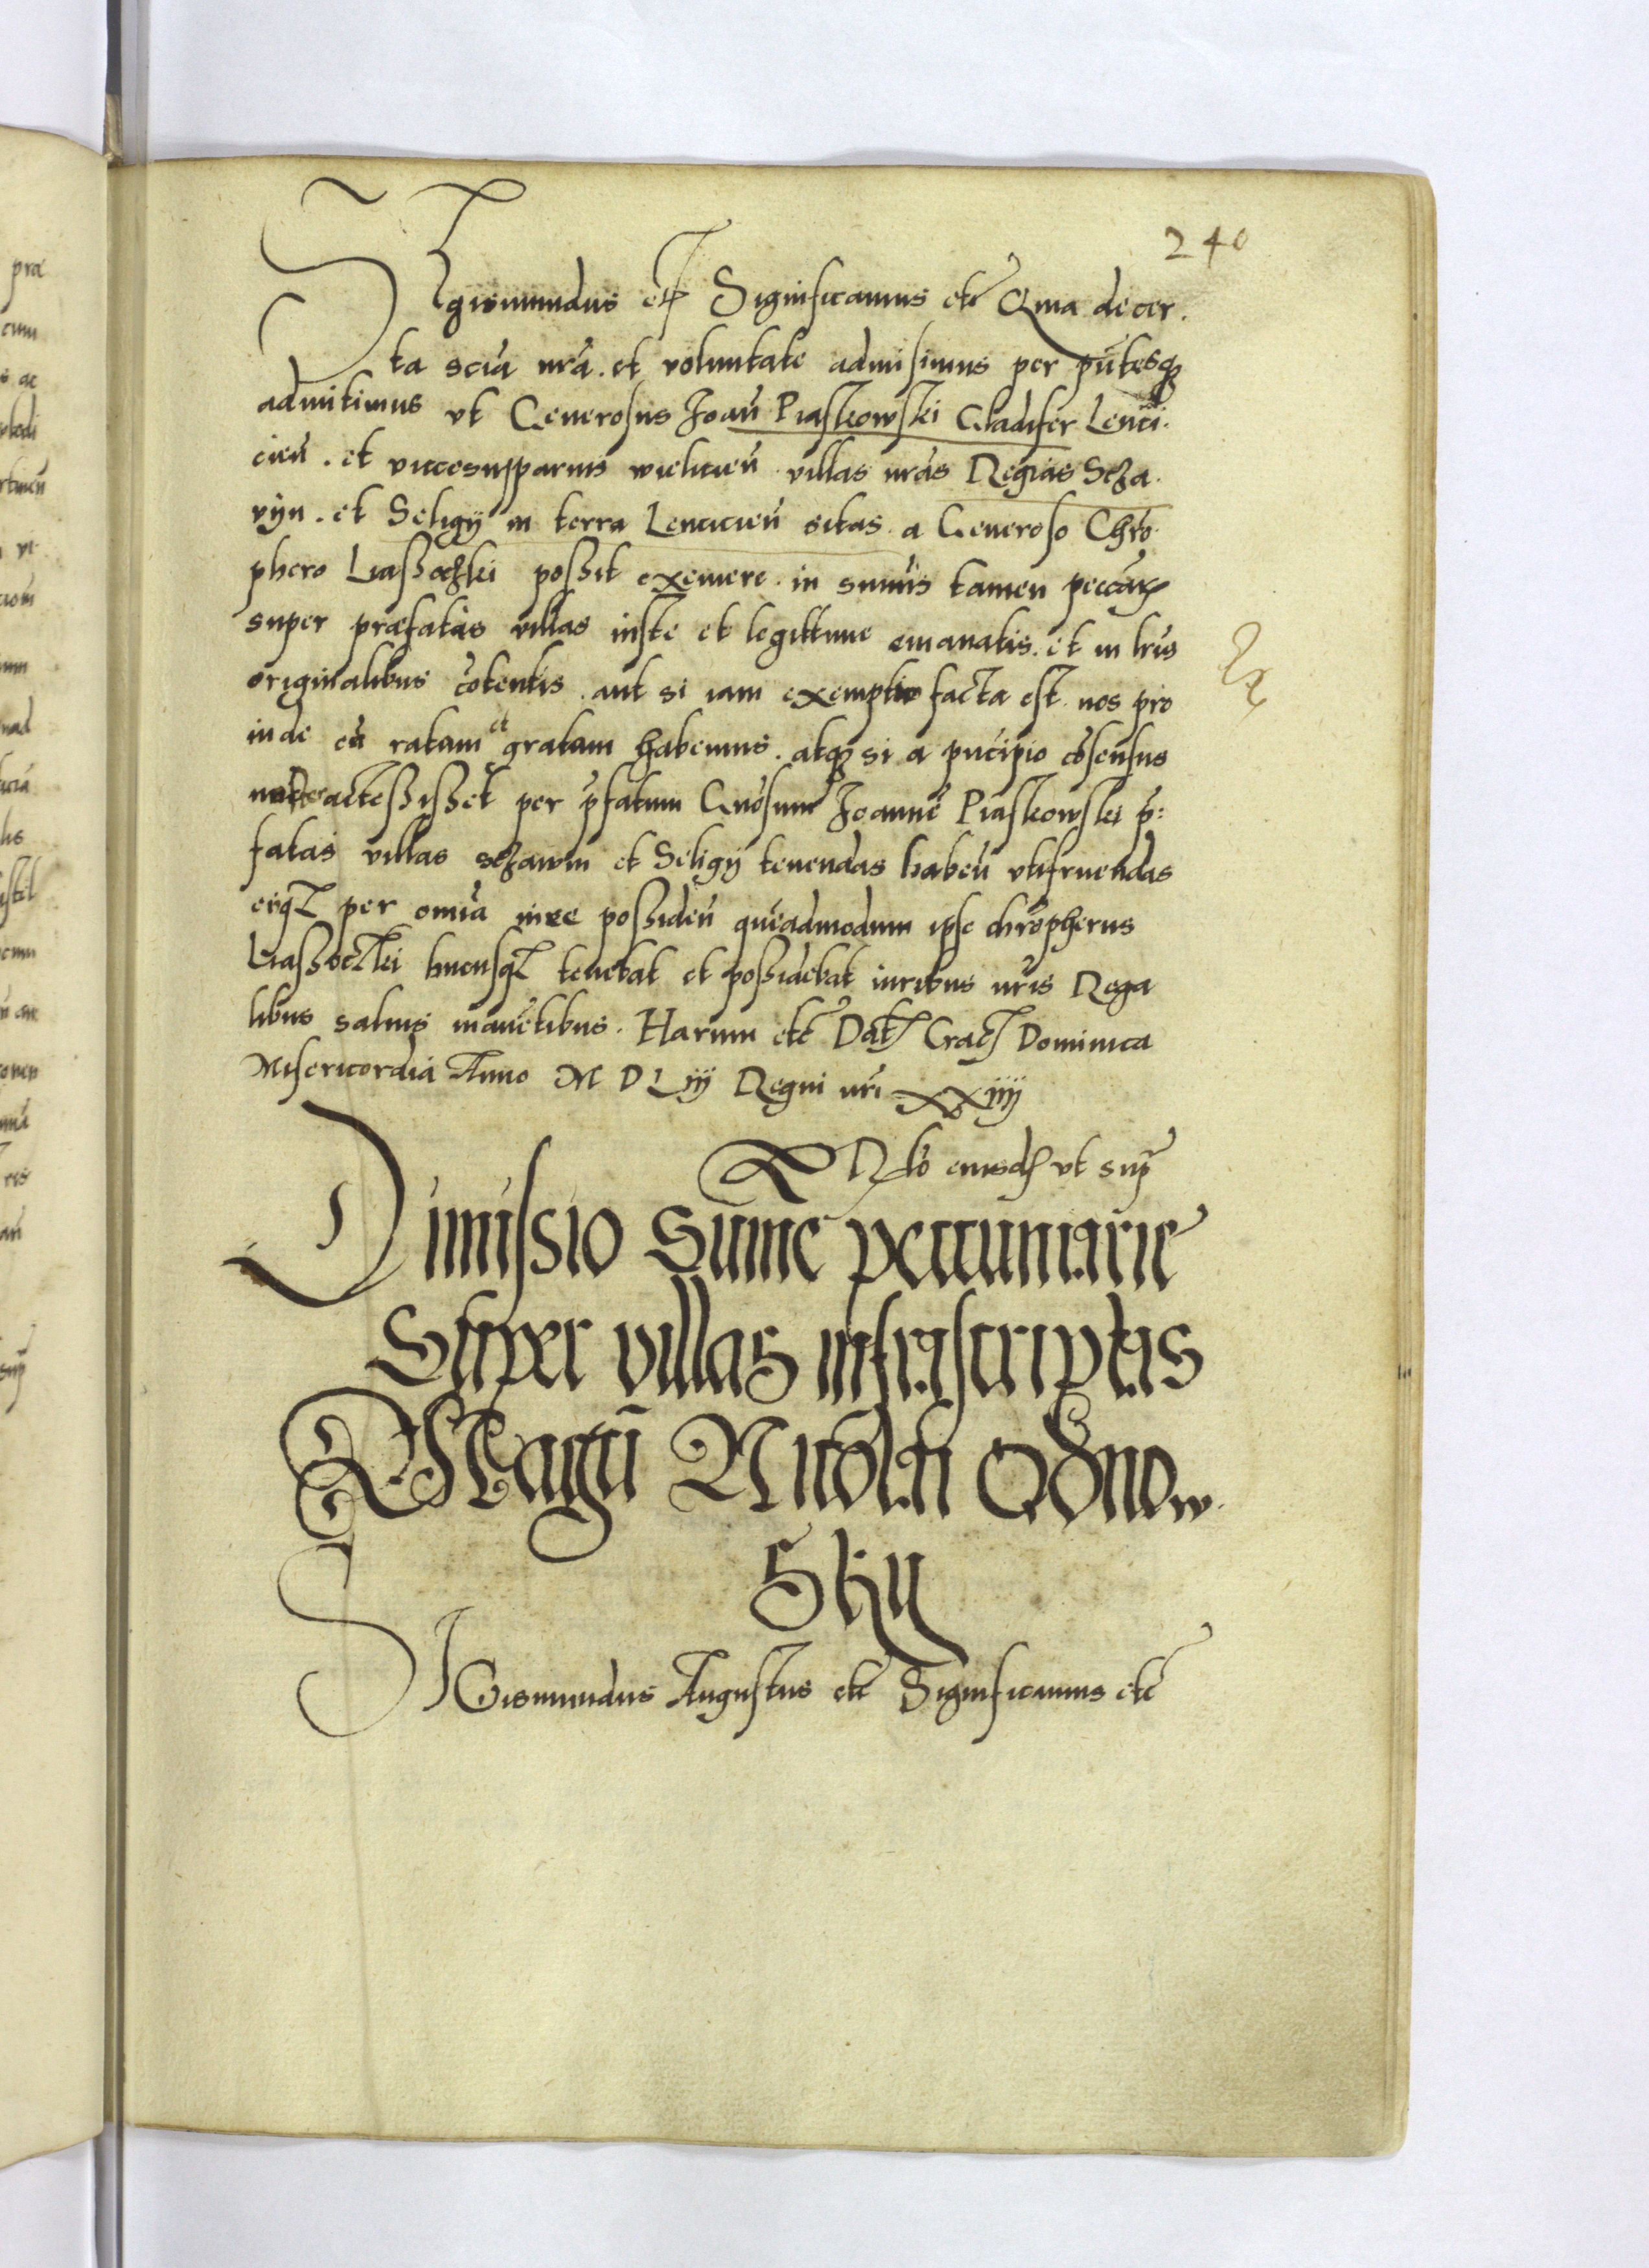 240
Sigismundus etc Significamus etc Quia de cer.
ta scia nra. et voluntate admisimus per pntesq
admittimus vt Generosus Joan Piaskowski Gladifer Lenci.
cien. et viccesupparius vielicien villas nras Regias Scza.
vyn. et Seligy in terra Lencicien sitas. a Generoso Chro.
phero Liassoczki possit exemere. in summis tamen peccuar
super præfatas villas iuste et legittime emanatis. et in lris
originalibus cotentis. aut si iam exemptio facta est. nos pro
inde ea ratam et gratam habemus. atq si a pncipio cosensus
noster actessisset per pfatum Gnosum Joanne Piaskowski p:
fatas villas sczawin et Seligy tenendas haben vtifruendas
eiqz per omia iure possiden queadmodum ipse chropherus
Liassoczki hucusqz tenebat et possidebat iuribus nris Rega
libus saluis manetibus. Harum etc Dat Crac Dominica
Misericordia Anno M D Liij Regni nri xxiiij
Rlo eiusd vt sup
Dimissio Sume peccuniarie
Super villas infrascriptas
Magci Nicolai Odnow.
Sky
Sigismundus Augustus etc Significamus etc